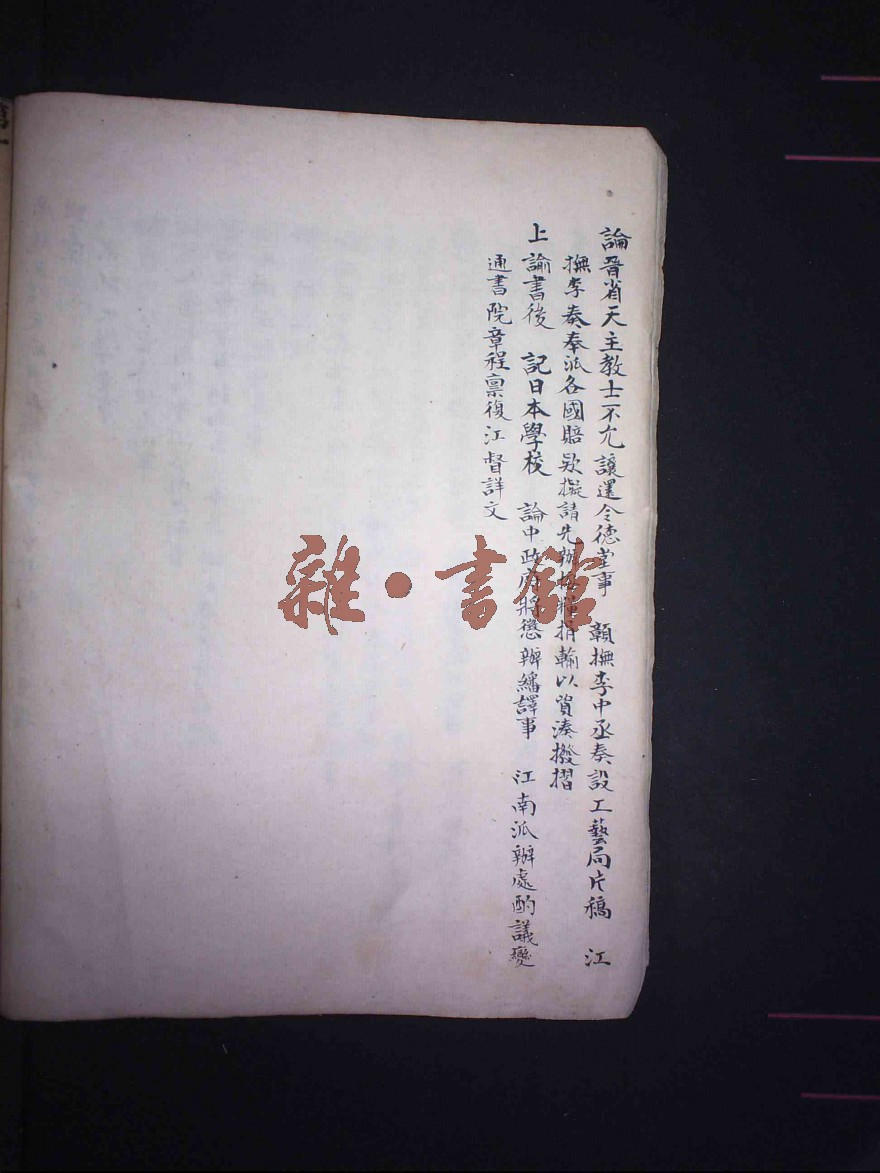 論晉省天主教士不允讓還令德堂事 贑撫李中丞奏設工藝局片稿 江
撫李奏奉派各國賠欵擬請先辦捐輸以資湊撥摺
上諭書後 記日本學校 論中政府將懲辦繙譯事 江南派辦處酌議變
通書院章程禀復江督詳文
雜·書館